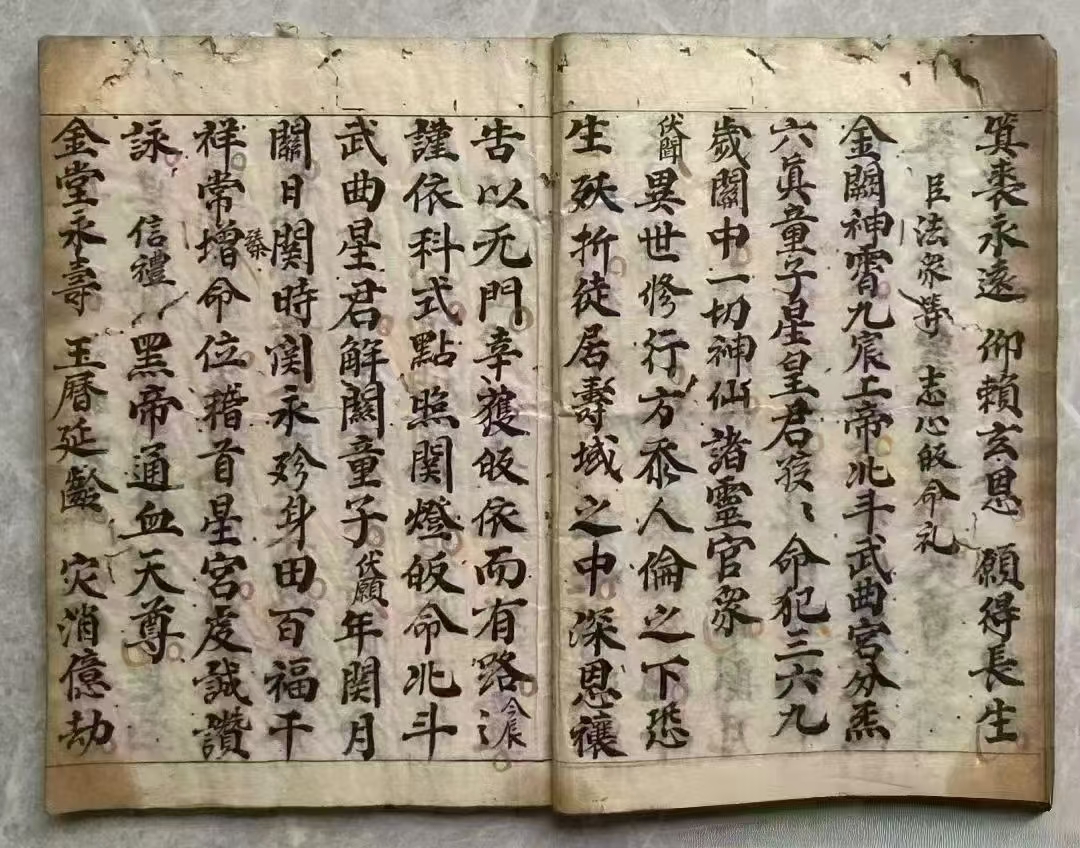 箕裘永遠 仰賴玄恩 願得長生
臣法衆等 志心皈命礼
金闕神霄九宸上帝北斗武曲宮分炁
六真童子星皇君孩〻命犯三六九
歲關中一切神仙諸靈官衆
伏聞異世修行方忝人倫之下恐
生殀折徒居壽域之中深恩禳
告以无門幸獲皈依而有路今辰
謹依科式點照関燈皈命北斗
武曲星君解關童子伏願年関月
關日関時関永殄身田百福千
祥常增臻命位稽首星宮虔誠讚
詠 信禮 黑帝通血天尊
金堂永壽 玉曆延齡 灾消億劫